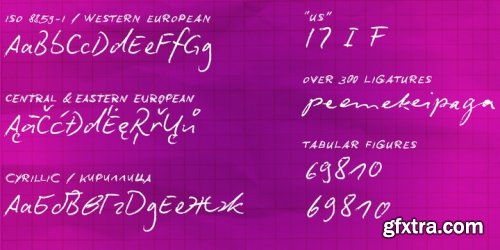 ISO 8859-1 / WESTERN EUROPEAN
AaBbCcDdEeFfGg
CENTRAL & EASTERN EUROPEAN
ĄāČćĐďĖęŖřŲů
CYRILLIC / КИРИЛЛИЦА
АаБбВвГгДдЕеЖж
"US"
17 I F
OVER 300 LIGATURES
TABULAR FIGURES
69810
69810
gfxtra.com